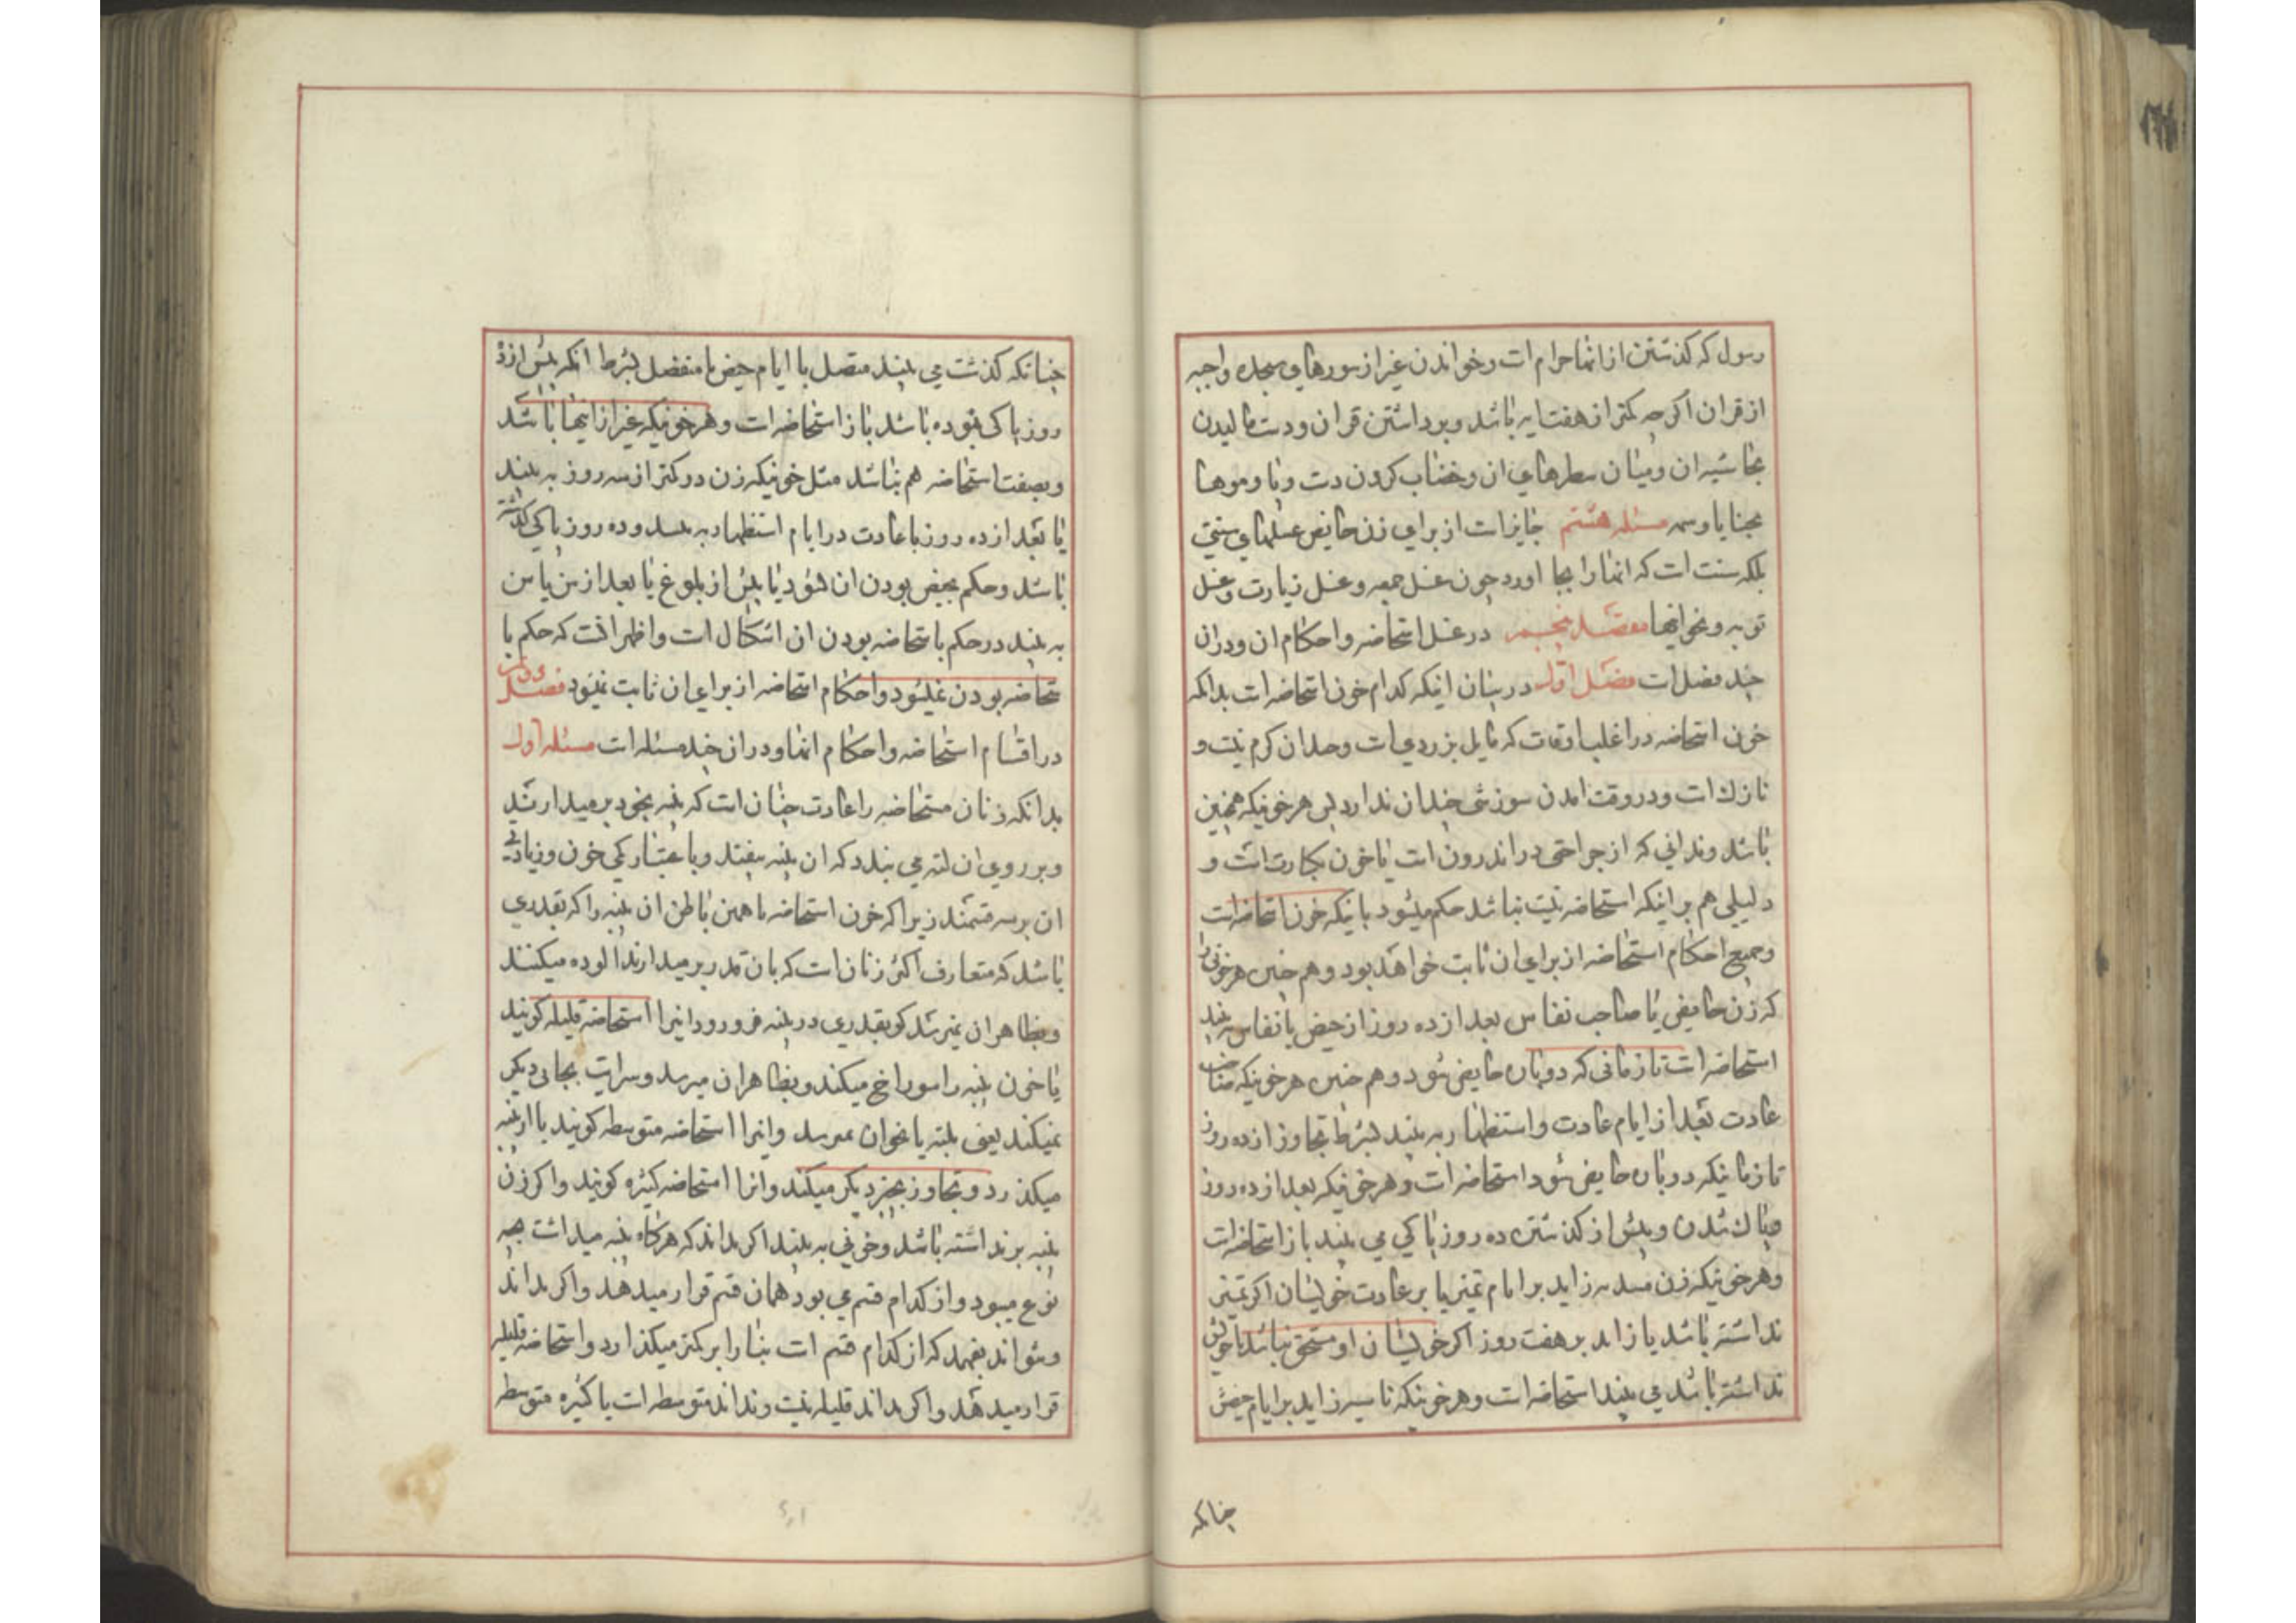 رسول که کذشتن از انها حرام است و خواندن غیر از سورهای سجده واجبه
از قران اکرچه کمتر از هفت ایه باشد و برداشتن قران و دست مالیدن
بحاشیه ان و میان سطرهای ان و خضاب کردن دست و پا و موها
بحنا یا وسمه مسئله هشتم جایز است از برای زن حایض غسلهای سنتی
بلکه سنت است که انها را بجا اورد چون غسل جمعه و غسل زیارت و غسل
توبه و نحو انها مقصد پنجم در غسل استحاضه و احکام ان و دران
چند فصل است فصل اول در بیان اینکه کدام خون استحاضه است بدانکه
خون استحاضه در اغلب اوقات که مایل بزردی است و چندان کرم نیست و
نازك است و در وقت امدن سوزشی چندان ندارد پس هر خونیکه همچنین
باشد و ندانی که از جراحتی در اندرون است یا خون بکارت است و
دلیلی هم بر اینکه استحاضه نیست نباشد حکم میشود باینکه خون استحاضه است
و جمیع احکام استحاضه از برای ان ثابت خواهد بود و هم چنین هر خونی را
که زن حایض یا صاحب نفاس بعد از ده روز از حیض یا نفاس به بیند
استحاضه است تا زمانی که دوباره حایض شود و هم چنین هر خونیکه صاحب
عادت بعد از ایام عادت و استظهار به بیند بشرط تجاوز از ده روز
تا زمانیکه دوباره حایض شود استحاضه است و هر خونیکه بعد از ده روز
و پاك شدن و پیش از کذشتن ده روز پاکی می بیند باز استحاضه است
و هر خونیکه زن زاید بر ایام تمیز یا بر عادت خویشان اکر تمیز
نداشته باشد یا زاید بر هفت روز اکر خویشان او متحقق نباشد یا خویش
نداشته باشد می بیند استحاضه است و هر خونیکه زاید بر ایام حیض
چنانکه
چنانکه کذشت می بیند متصل با ایام حیض یا منفصل بشرط انکه پیش از ده
روز پاکی بوده باشد باز استحاضه است و هر خونیکه غیر از اینها باشد
و بصفت استحاضه هم نباشد مثل خونیکه زن در کمتر از سه روز به بیند
یا بعد از ده روز یا عادت در ایام استظهار به بیند و ده روز پاکی کذشته
باشد و حکم بحیض بودن ان نشود یا پیش از بلوغ یا بعد از سن یاس
به بیند در حکم باستحاضه بودن ان اشکال است و اظهر انست که حکم با
ستحاضه بودن نمیشود و احکام استحاضه از برای ان ثابت نمیشود فصل دویم
در اقسام استحاضه و احکام انها و دران چند مسئله است مسئله اول
بدانکه زنان مستحاضه را عادت چنان است که پنبه بخود برمیدارند
و بر روی ان لته می بندد که ان پنبه نیفتد و باعتبار کمی خون و زیادتی
ان بر سه قسمند زیرا که خون استحاضه یا همین باطن ان پنبه را که بقدری
باشد که متعارف اکثر زنان است که بان قدر برمیدارند الوده میکنند
و بظاهر ان نمیرسد کو بقدری در پنبه فرو رود اینرا استحاضه قلیله کویند
یا خون پنبه را سوراخ میکند و بظاهر ان میرسد و سرایت بجائی دیکر
نمیکند یعنی بلته یا نحو ان نمیرسد و اینرا استحاضه متوسطه کویند یا از پنبه
میکذرد و تجاوز بچیز دیکر میکند و انرا استحاضه کثیره کویند و اکر زن
پنبه برنداشته باشد و خونی به بیند اکر بداند که هرکاه پنبه میداشت چه
نوع میبود و از کدام قسم می بود همان قسم قرار میدهد و اکر نداند
و نتواند بفهمد که از کدام قسم است بنا را بر کمتر میکذارد و استحاضه قلیله
قرار میدهد و اکر بداند قلیله نیست و نداند متوسطه است یا کثیره متوسطه